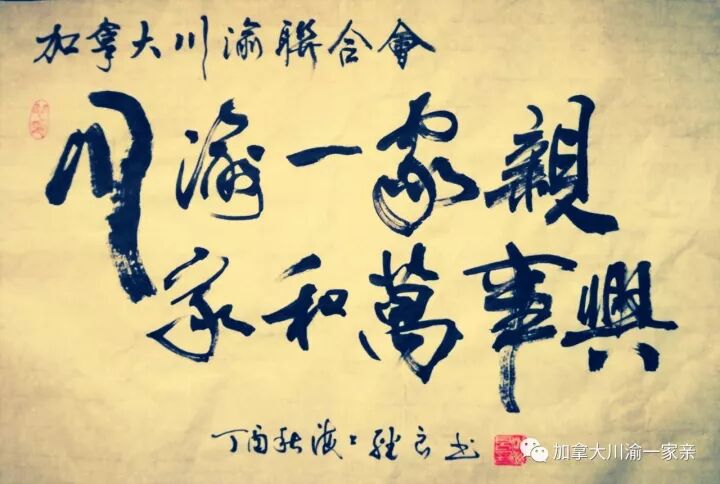 加拿大川渝聯合會
川渝一家親
家和萬事興
丁酉秋海上
書
加拿大川渝一家亲